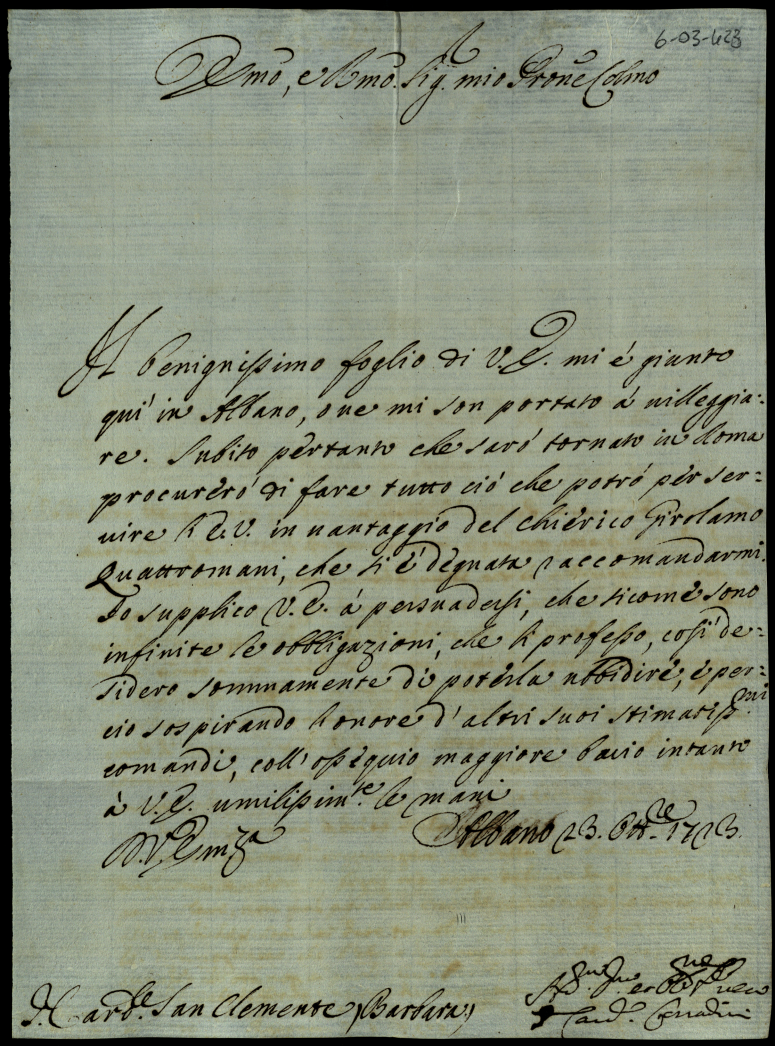 6-03-623
Emo, e Rmo. Sig. mio Prone Colmo
Il benignissimo foglio di V.E. mi é giunto
qui in Albano, oue mi son portato á uilleggia=
re. Subito pertanto che saró tornato in Roma
procureró di fare tutto ció che potró per ser=
uire l'E.V. in uantaggio del chierico Girolamo
Quattromani, che si é degnata raccomandarmi.
Io supplico V.E. á persuadersi, che sicome sono
infinite le obbligazioni, che li professo, così de=
sidero sommamente di poterla ubbidire, e per=
ció sospirando l'onore d'altri suoi stimatiss.mi
comandi, coll'ossequio maggiore bacio intanto
á V.E. umilissim.te le mani
D.V.Emza
Albano 23. Ott.re 1723.
S. Card.le San Clemente (Barbara)
Card. Corradini